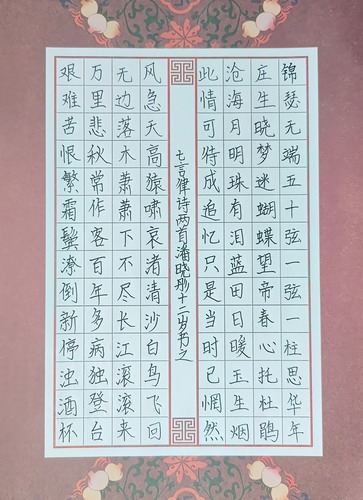 锦瑟无端五十弦一弦一柱思华年
庄生晓梦迷蝴蝶望帝春心托杜鹃
沧海月明珠有泪蓝田日暖玉生烟
此情可待成追忆只是当时已惘然
七言律诗两首潘晓彤十二岁书之
风急天高猿啸哀渚清沙白鸟飞回
无边落木萧萧下不尽长江滚滚来
万里悲秋常作客百年多病独登台
艰难苦恨繁霜鬓潦倒新停浊酒杯